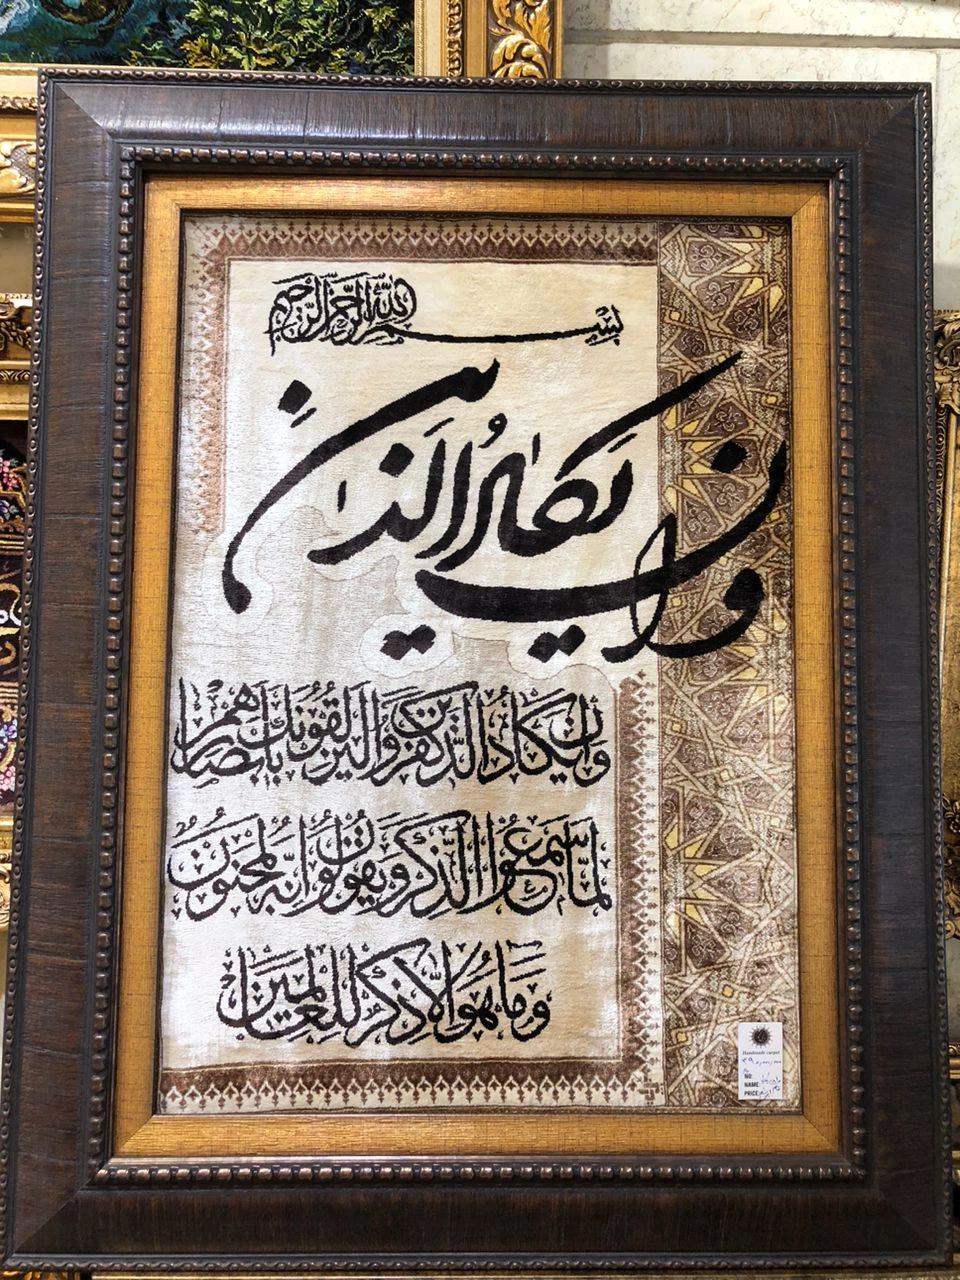 بِسْمِ اللَّهِ الرَّحْمَنِ الرَّحِيمِ
وَإِن يَكَادُ الَّذِينَ
وَإِن يَكَادُ الَّذِينَ كَفَرُوا لَيُزْلِقُونَكَ بِأَبْصَارِهِمْ
لَمَّا سَمِعُوا الذِّكْرَ وَيَقُولُونَ إِنَّهُ لَمَجْنُونٌ
وَمَا هُوَ إِلَّا ذِكْرٌ لِلْعَالَمِينَ
Handmade carpet
NO:
NAME:
PRICE: